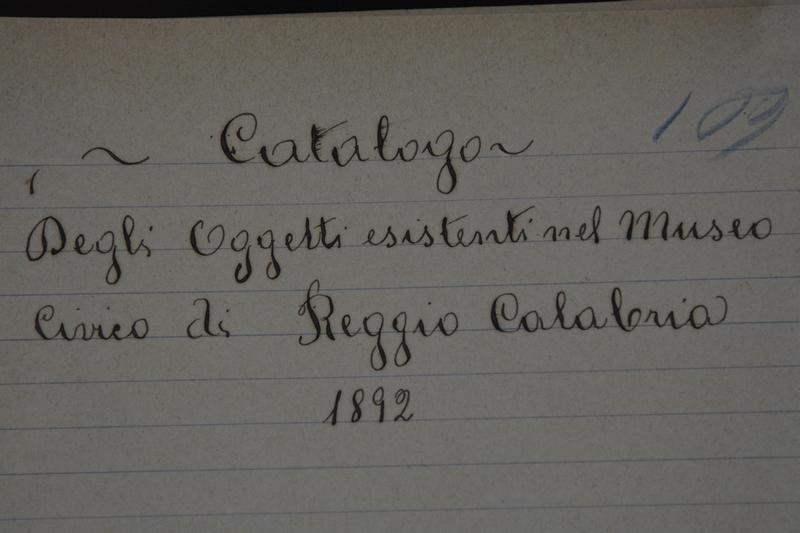 109
~ Catalogo ~
Degli Oggetti esistenti nel Museo
Civico di Reggio Calabria
1892